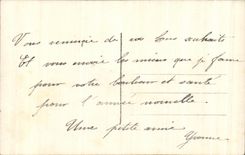 Vous remercie de vos bons souhaits
Et vous envoie les miens que je forme
pour votre bonheur et santé
pour l'année nouvelle.
Une petite amie
Yvonne